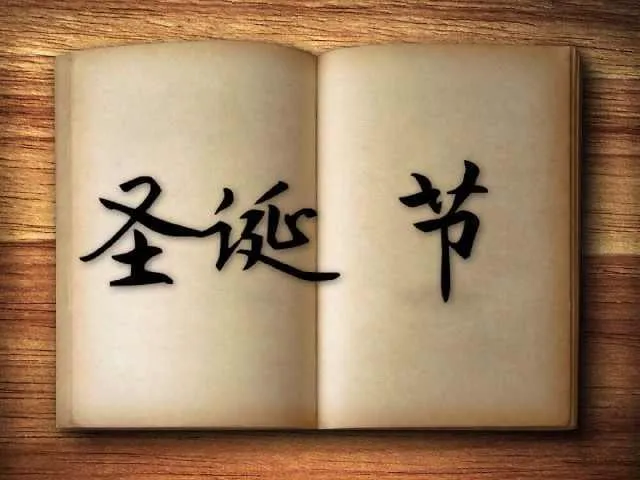 圣诞节